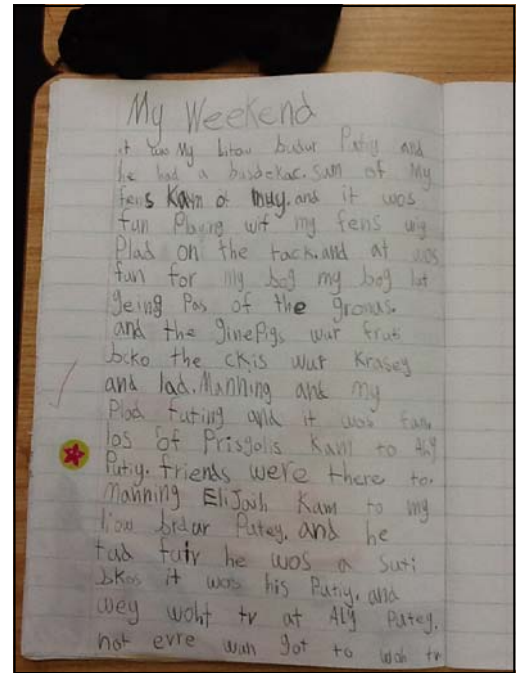 My Weekend
it was My litau budur Patiy and
he had a busdekac. Sum of My
fens Kam of and it wos
fun Playing wit my fens wiy
Plad on the tack. and at wos
fun for my bog my bog lat
geing Pas of the gronas.
and the ginePigs wur frut
bcko the ckis wur Krasey
and lad. Manning and my
Plad futing and it wos fun.
los of Prisgolis Kam to Aly
Putiy. friends were there to.
Manning EliJaih Kam to my
liow brdar Patey. and he
tad fuir he wos a Suti
bkos it wos his Putiy. and
wey woht tv at Aly Patey.
not evre wan got to woh tv